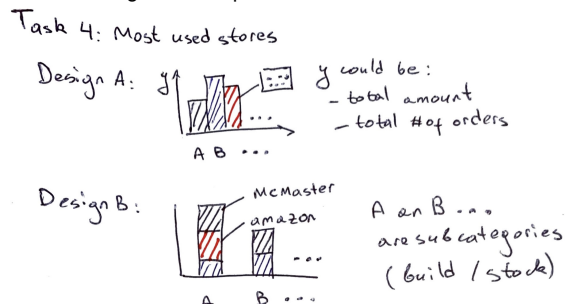 Task 4: Most used stores
Design A:
y
y could be:
- total amount
- total # of orders
A B ...
...
Design B:
McMaster
amazon
A an B ...
are subcategories
(build / stock)
...
A B ...